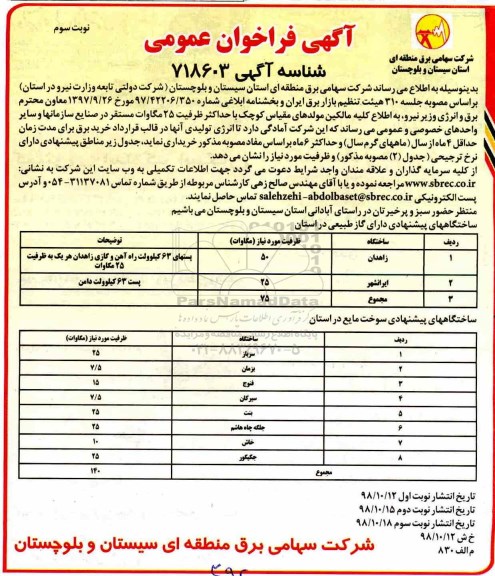 نوبت سوم
آگهی فراخوان عمومی
شرکت سهامی برق منطقه ای
استان سیستان و بلوچستان
شناسه آگهی ۷۱۸۶۰۳
بدینوسیله به اطلاع می رساند شرکت سهامی برق منطقه ای استان سیستان و بلوچستان (شرکت دولتی تابعه وزارت نیرو در استان)
براساس مصوبه جلسه ۳۱۰ هیئت تنظیم بازار برق ایران و بخشنامه ابلاغی شماره ۹۷/۴۲۲۰۶/۳۵۰ مورخ ۱۳۹۷/۹/۲۶ معاون محترم
برق و انرژی وزیر نیرو، به اطلاع کلیه مالکین مولدهای مقیاس کوچک با حداکثر ظرفیت ۲۵ مگاوات مستقر در صنایع سازمانها و سایر
واحدهای خصوصی و عمومی می رساند که این شرکت آمادگی دارد تا انرژی تولیدی آنها در قالب قرارداد خرید برق برای مدت زمان
حداقل ۴ ماه از سال (ماههای گرم سال) و حداکثر ۶ ماه براساس مفاد مصوبه مذکور خریداری نماید، جدول زیر مناطق پیشنهادی دارای
نرخ ترجیحی (جدول (۲) مصوبه مذکور) و ظرفیت مورد نیاز را نشان می دهد.
از کلیه سرمایه گذاران و علاقه مندان واجد شرایط دعوت می گردد جهت اطلاعات تکمیلی به وب سایت این شرکت به نشانی:
www.sbrec.co.ir مراجعه نموده و یا با آقای مهندس صالح زهی کارشناس مربوطه از طریق شماره تماس ۳۱۱۳۷۰۸۱-۰۵۴ و آدرس
پست الکترونیکی salehzehi-abdolbaset@sbrec.co.ir تماس حاصل نمایند.
منتظر حضور سبز و پرخیرتان در راستای آبادانی استان سیستان و بلوچستان می باشیم
ساختگاههای پیشنهادی دارای گاز طبیعی در استان
ردیف ساختگاه ظرفیت مورد نیاز (مگاوات) توضیحات
۱ زاهدان ۵۰ پستهای ۶۳ کیلوولت راه آهن و گازی زاهدان هر یک به ظرفیت
۲۵ مگاوات
۲ ایرانشهر ۲۵ پست ۶۳ کیلوولت دامن
۳ مجموع ۷۵
ParsNamadData
پایگاه اطلاع رسانی مناقصه و مزایده
۰۲۱-۸۸۳۴۹۶۷۰-۵
ساختگاههای پیشنهادی سوخت مایع در استان
ردیف ساختگاه ظرفیت مورد نیاز (مگاوات)
۱ سرباز ۲۵
۲ بزمان ۷/۵
۳ فنوج ۱۵
۴ سیرکان ۷/۵
۵ بنت ۲۵
۶ جلگه چاه هاشم ۲۵
۷ خاش ۱۰
۸ جکیگور ۲۵
مجموع ۱۴۰
تاریخ انتشار نوبت اول ۹۸/۱۰/۱۲
تاریخ انتشار نوبت دوم ۹۸/۱۰/۱۵
تاریخ انتشار نوبت سوم ۹۸/۱۰/۱۸
خ ش ۹۸/۱۰/۱۲
م الف ۸۳۰
شرکت سهامی برق منطقه ای سیستان و بلوچستان